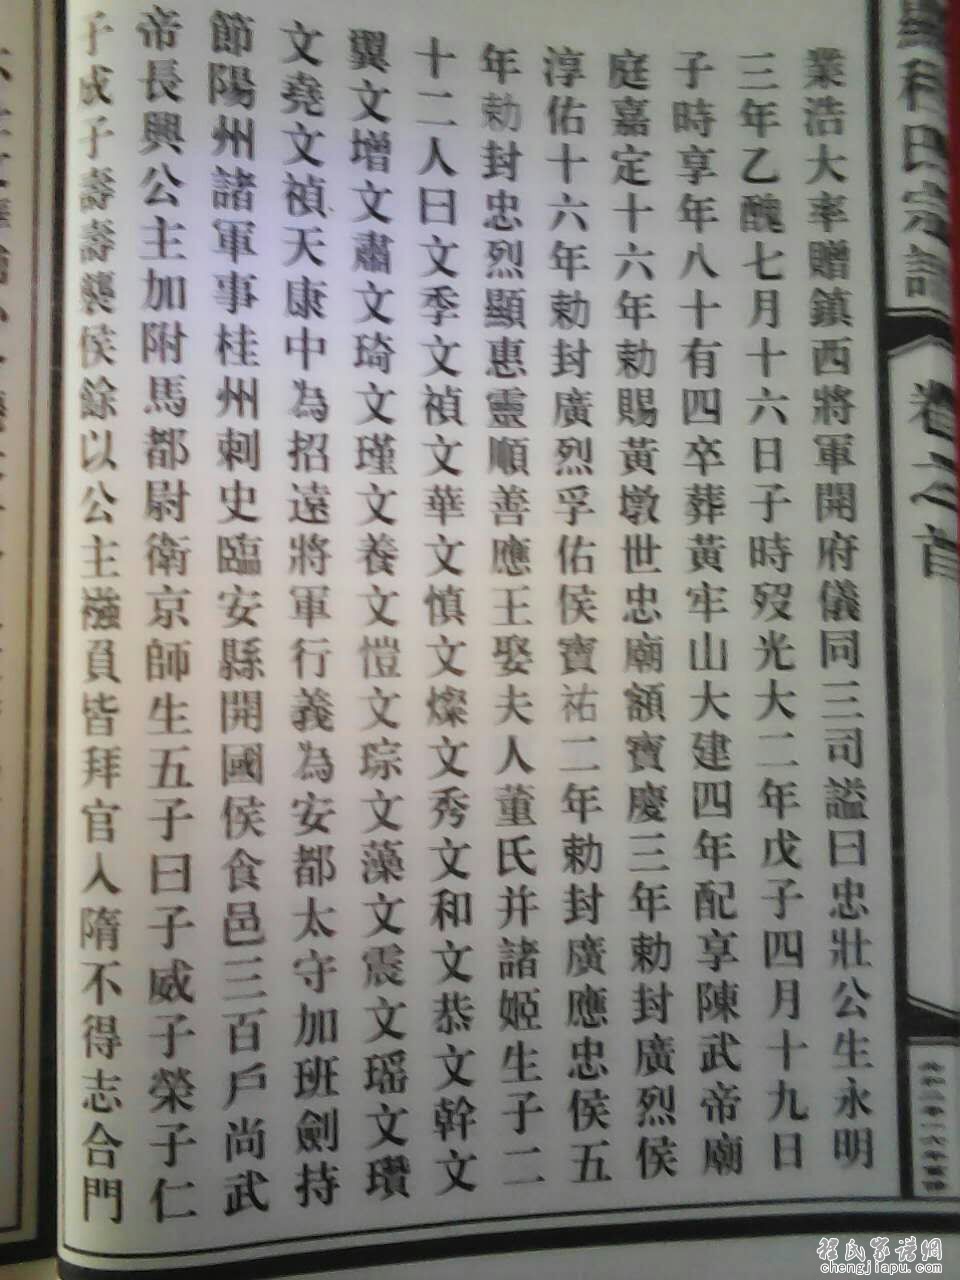 氏宗譜
卷之首
業浩大率贈鎮西將軍開府儀同三司謚曰忠壯公生永明
三年乙醜七月十六日子時歿光大二年戊子四月十九日
子時享年八十有四卒葬黃牢山大建四年配享陳武帝廟
庭嘉定十六年勅賜黃墩世忠廟額寶慶三年勅封廣烈侯
淳佑十六年勅封廣烈孚佑侯寶祐二年勅封廣應忠侯五
年勅封忠烈顯惠靈順善應王娶夫人董氏并諸姬生子二
十二人曰文季文禎文華文慎文燦文秀文和文恭文幹文
翼文增文肅文琦文瑾文養文愷文琮文藻文震文瑶文瓚
文堯文禎天康中為招遠將軍行義為安都太守加班劍持
節陽州諸軍事桂州刺史臨安縣開國侯食邑三百戶尚武
帝長興公主加附馬都尉衛京師生五子曰子威子榮子仁
子成子壽壽襲侯餘以公主襁員皆拜官入隋不得志合門
程氏家譜網
chengjiapu.com